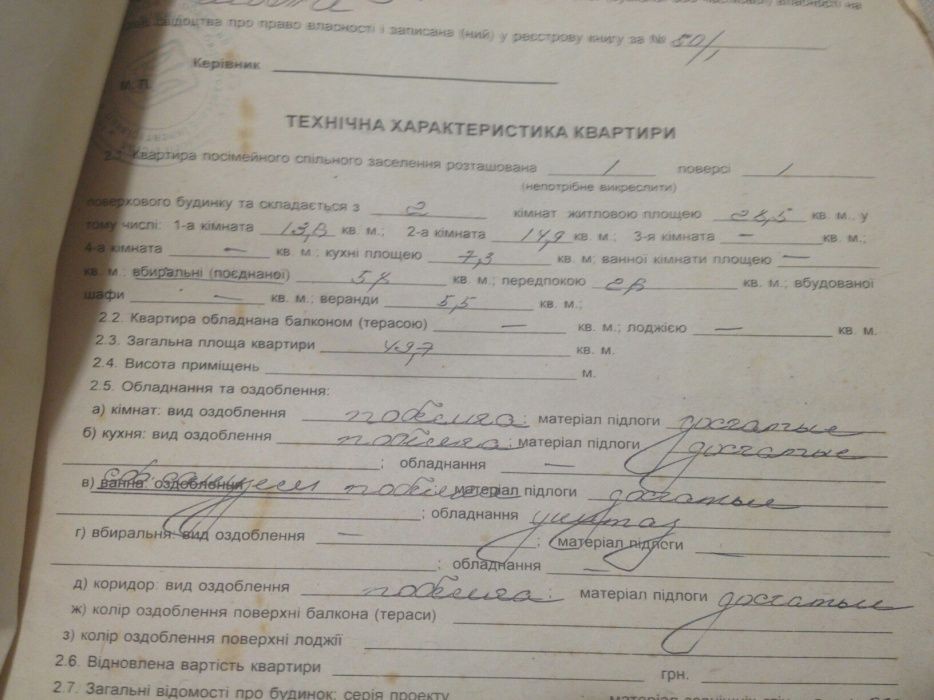 свідоцтва про право власності і записана (ний) у реєстрову книгу за № 50/1
Керівник
М. П.
ТЕХНІЧНА ХАРАКТЕРИСТИКА КВАРТИРИ
2.1. Квартира посімейного спільного заселення розташована 1 поверсі 1
(непотрібне викреслити)
поверхового будинку та складається з 2 кімнат житловою площею 28,5 кв. м., у
тому числі: 1-а кімната 13,6 кв. м.; 2-а кімната 14,9 кв. м.; 3-я кімната — кв. м.;
4-а кімната — кв. м.; кухні площею 7,3 кв. м; ванної кімнати площею —
кв. м.; вбиральні (поєднаної) кв. м.; передпокою кв. м.; вбудованої
шафи — кв. м.; веранди 5,5 кв. м.;
2.2. Квартира обладнана балконом (терасою) — кв. м.; лоджією — кв. м.
2.3. Загальна площа квартири 49,7 кв. м.
2.4. Висота приміщень м.
2.5. Обладнання та оздоблення:
а) кімнат: вид оздоблення побелка; матеріал підлоги дощатые
б) кухня: вид оздоблення побелка; матеріал підлоги дощатые
; обладнання —
в) ванна: оздоблення побелка матеріал підлоги дощатые
; обладнання унитаз
г) вбиральня: вид оздоблення — ; матеріал підлоги —
; обладнання —
д) коридор: вид оздоблення побелка; матеріал підлоги дощатые
ж) колір оздоблення поверхні балкона (тераси)
з) колір оздоблення поверхні лоджії
2.6. Відновлена вартість квартири грн.
2.7. Загальні відомості про будинок: серія проекту